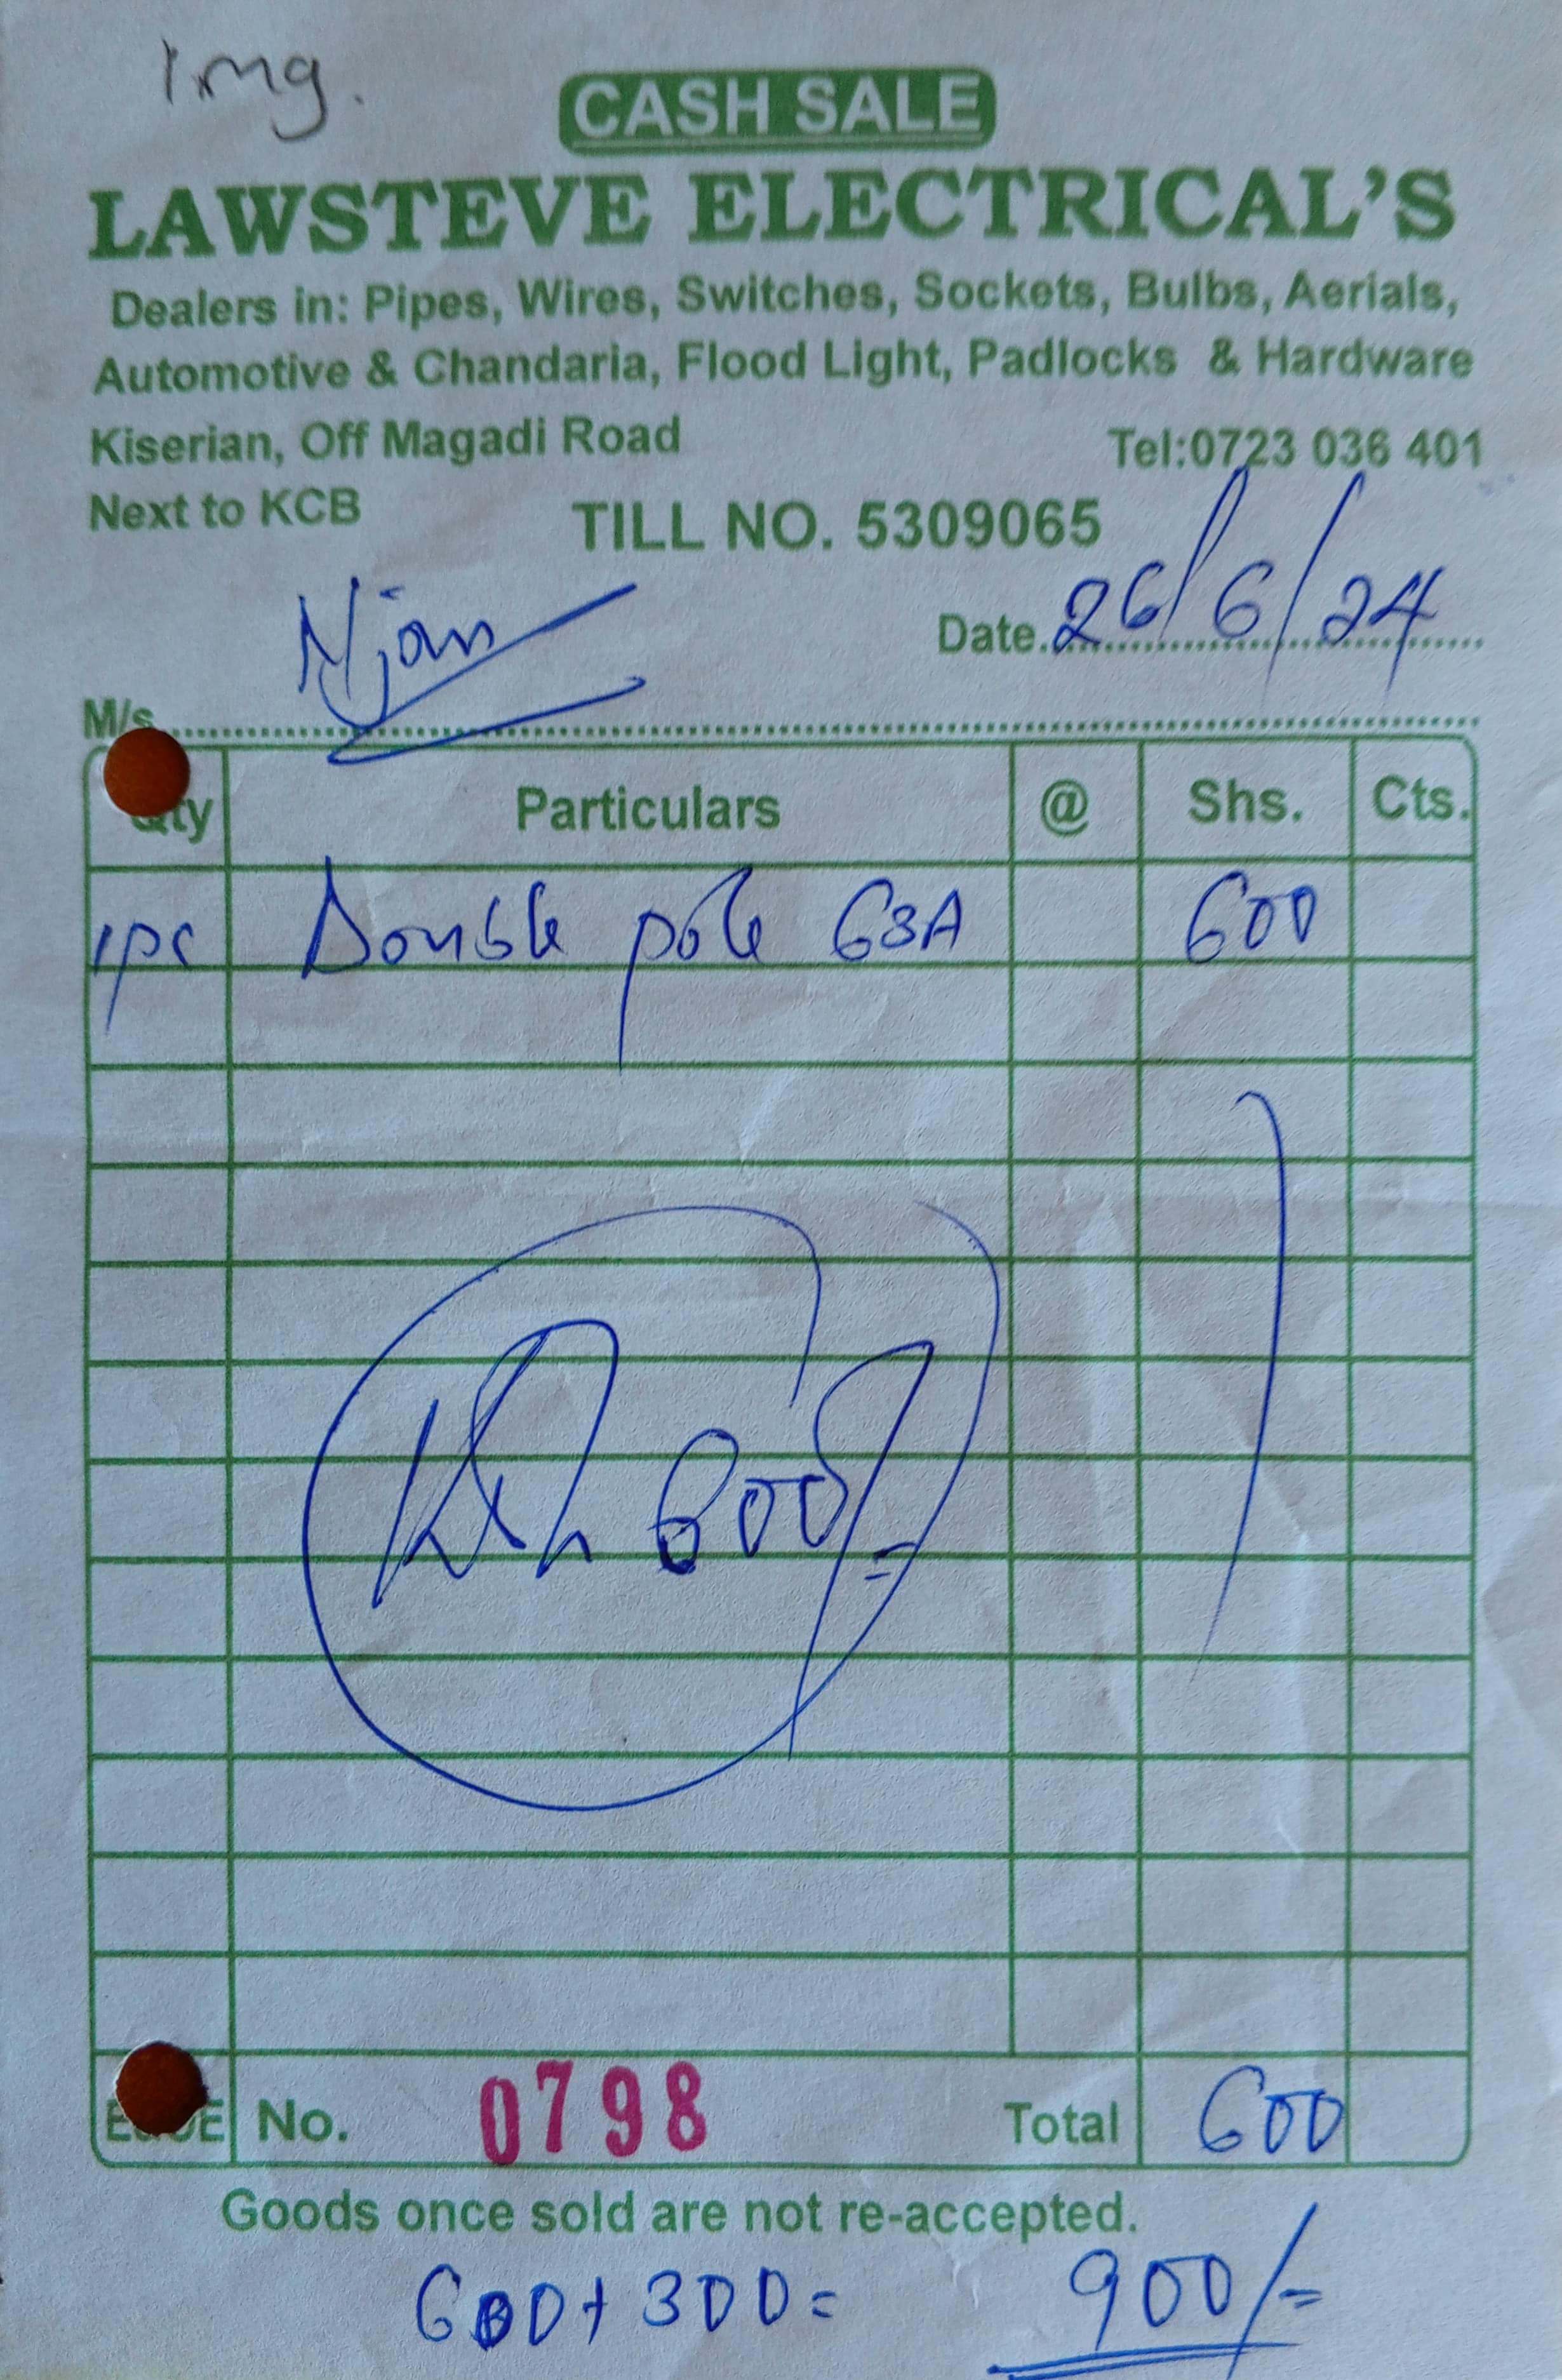 1mg.
CASH SALE
LAWSTEVE ELECTRICAL'S
Dealers in: Pipes, Wires, Switches, Sockets, Bulbs, Aerials,
Automotive & Chandaria, Flood Light, Padlocks & Hardware
Kiserian, Off Magadi Road Tel:0723 036 401
Next to KCB TILL NO. 5309065
Date. 26/6/24
M/s
Qty Particulars @ Shs. Cts.
1pc Double pole 63A 600
600/=
No. 0798 Total 600
Goods once sold are not re-accepted.
600+300= 900/=